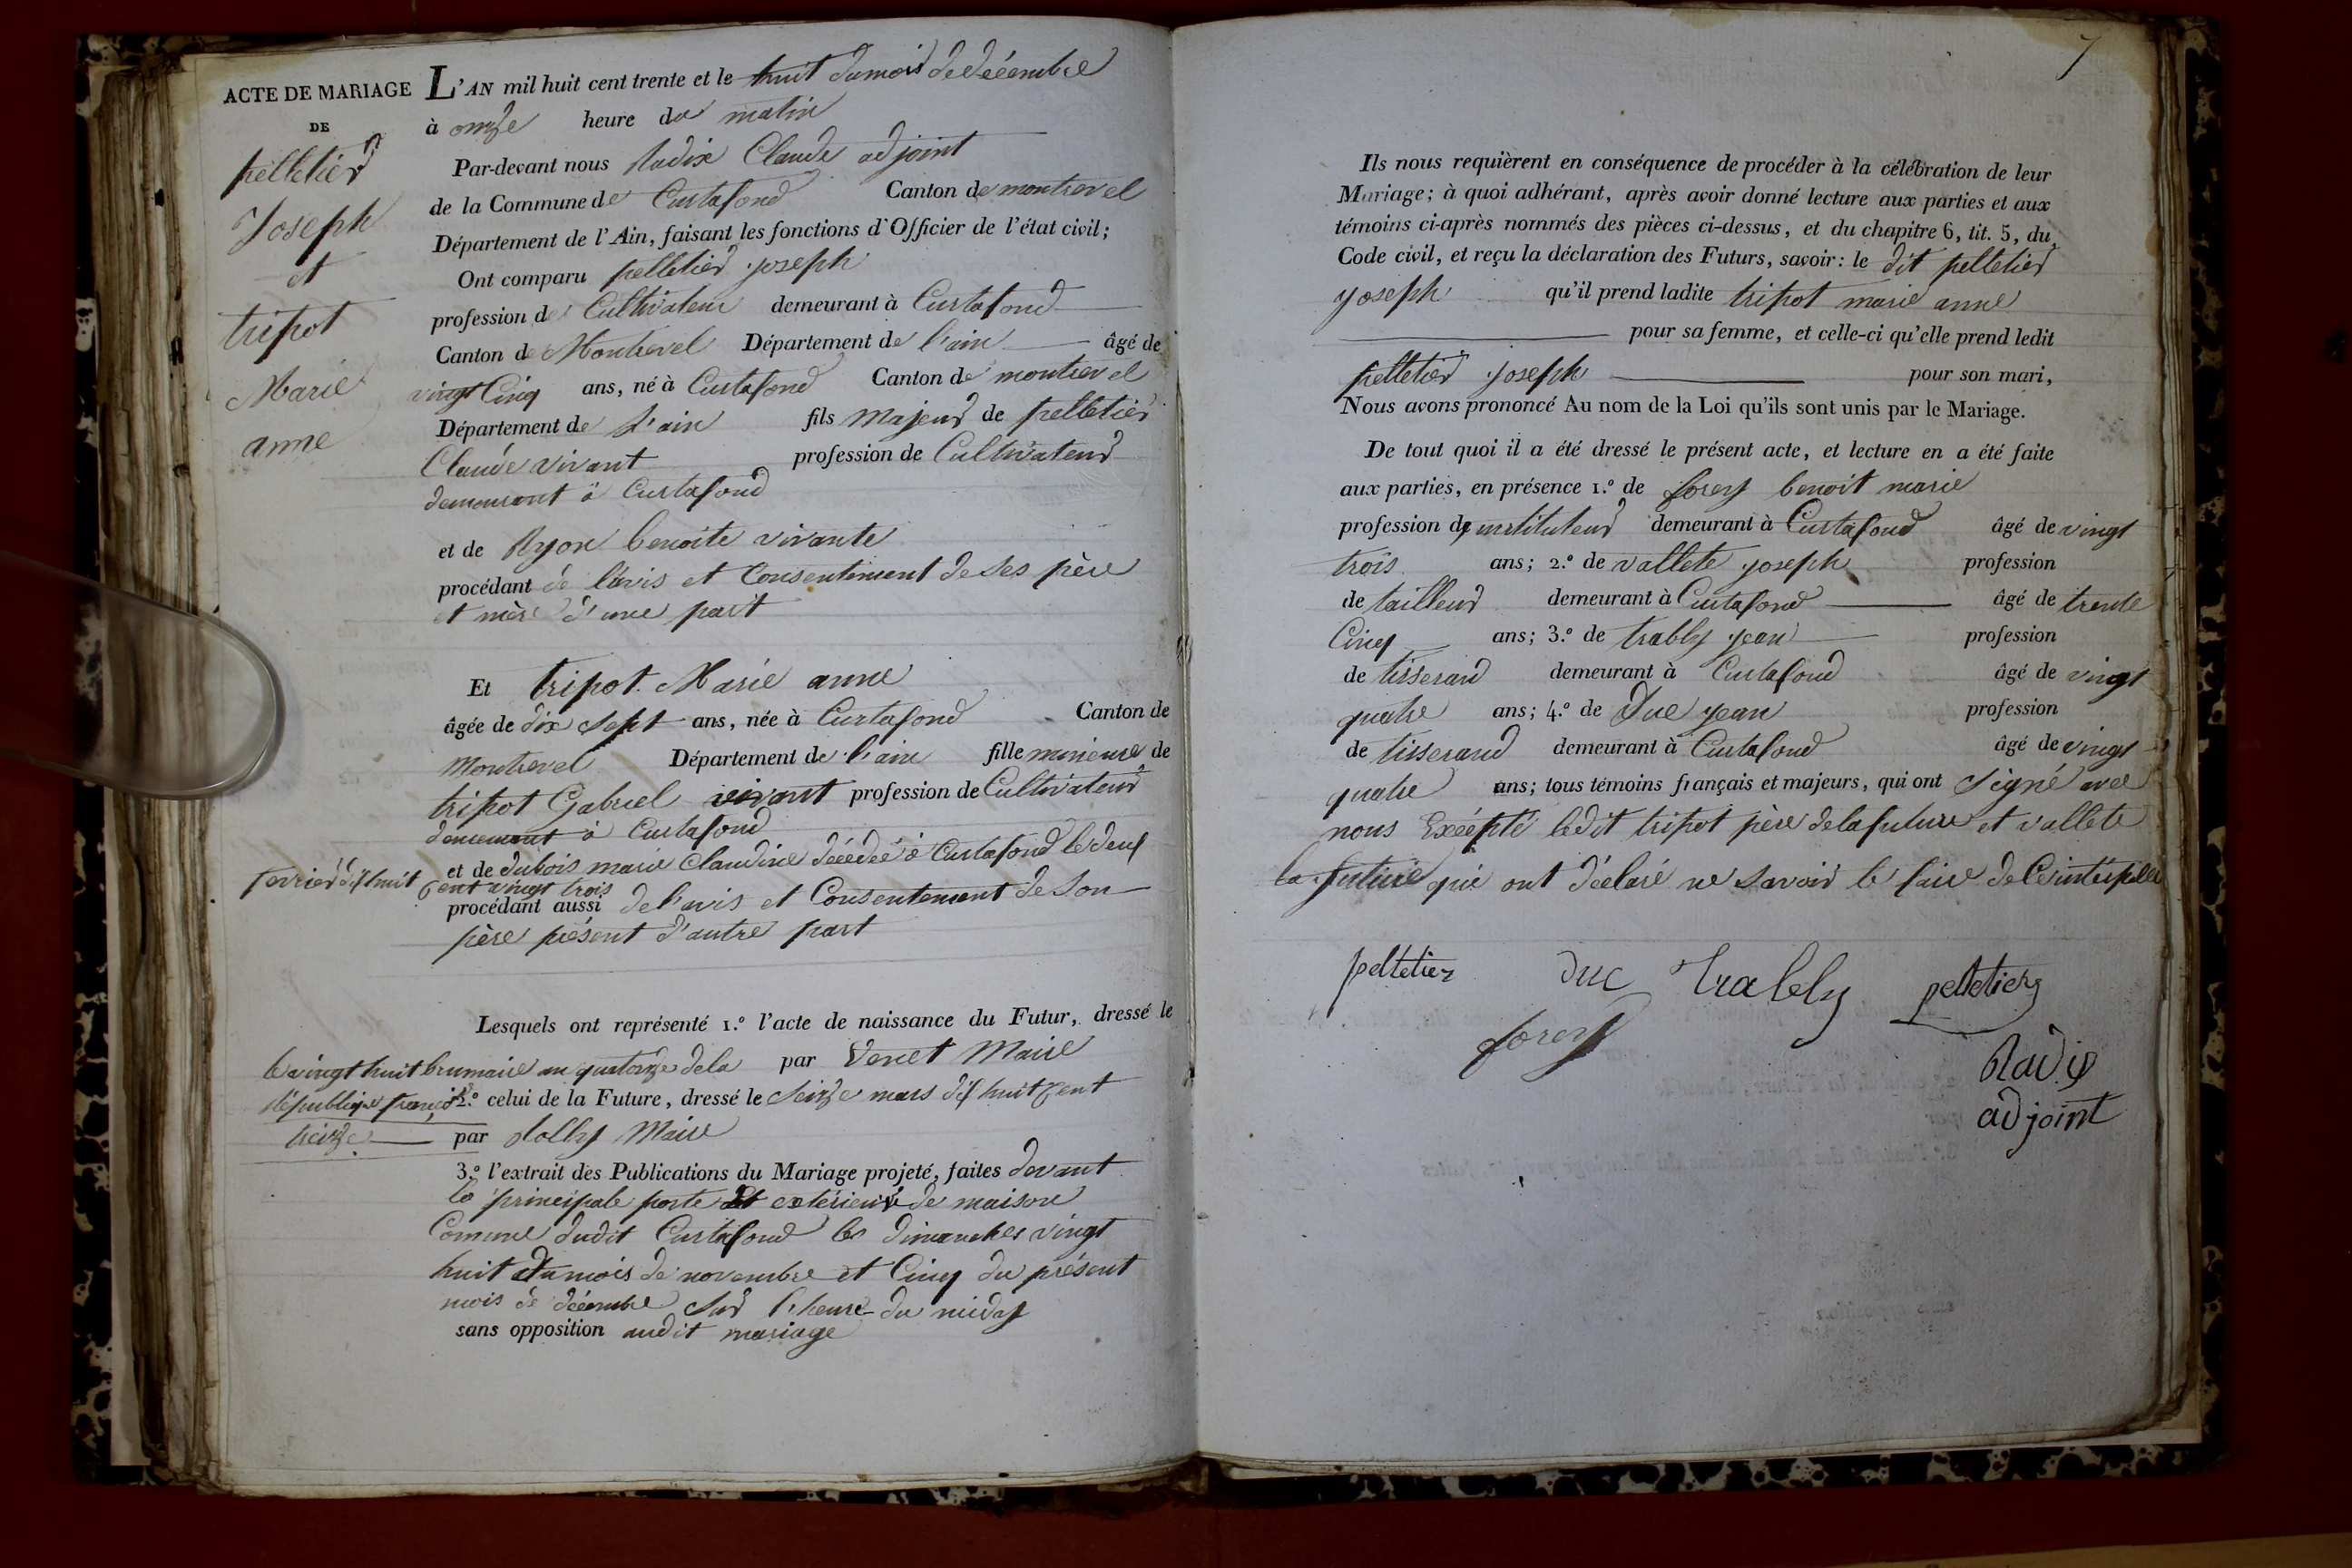 ACTE DE MARIAGE
DE
pelletier
Joseph
et
tripot
Marie
anne
L'AN mil huit cent trente et le huit du mois de décembre
à onze heure du matin
Par-devant nous Radix Claude adjoint
de la Commune de Curtafond Canton de montrevel
Département de l'Ain, faisant les fonctions d'Officier de l'état civil;
Ont comparu pelletier joseph
profession de Cultivateur demeurant à Curtafond
Canton de Montrevel Département de l'ain âgé de
vingt Cinq ans, né à Curtafond Canton de montrevel
Département de l'ain fils majeur de pelletier
Claude vivant profession de Cultivateur
demeurant à Curtafond
et de Ryon benoite vivante
procédant de l'avis et Consentement de ses père
et mère d'une part
Et tripot Marie anne
âgée de dix sept ans, née à Curtafond Canton de
Montrevel Département de l'ain fille mineure de
tripot Gabriel vivant profession de Cultivateur
demeurant à Curtafond
et de dubois marie Claudine décédée à Curtafond le deux
fevrier dix huit Cent vingt trois
procédant aussi de l'avis et Consentement de son
père présent d'autre part
Lesquels ont représenté 1.º l'acte de naissance du Futur, dressé le
le vingt huit brumaire an quatorze de la par Venet Maire
république 2.º celui de la Future, dressé le seize mars dix huit Cent
treize par Maire
3.º l'extrait des Publications du Mariage projeté, faites devant
la principale porte et extérieure de maison
Comune dudit Curtafond les dimanches vingt
huit du mois de novembre et Cinq du présent
mois de décembre sur l'heure du midy
sans opposition audit mariage
7
Ils nous requièrent en conséquence de procéder à la célébration de leur
Mariage; à quoi adhérant, après avoir donné lecture aux parties et aux
témoins ci-après nommés des pièces ci-dessus, et du chapitre 6, tit. 5, du
Code civil, et reçu la déclaration des Futurs, savoir: le dit pelletier
joseph qu'il prend ladite tripot marie anne
pour sa femme, et celle-ci qu'elle prend ledit
pelletier joseph pour son mari,
Nous avons prononcé Au nom de la Loi qu'ils sont unis par le Mariage.
De tout quoi il a été dressé le présent acte, et lecture en a été faite
aux parties, en présence 1.º de forey benoit marie
profession de instituteur demeurant à Curtafond âgé de vingt
trois ans; 2.º de vallete joseph profession
de tailleur demeurant à Curtafond âgé de trente
Cinq ans; 3.º de trably jean profession
de tisserand demeurant à Curtafond âgé de vingt
quatre ans; 4.º de Duc jean profession
de tisserand demeurant à Curtafond âgé de vingt
quatre ans; tous témoins français et majeurs, qui ont signé avec
nous Excépté ledit tripot père de la future et vallete
la future qui ont déclaré ne savoir le faire de Ce interpellé
pelletier Duc trably pelletier
forey
Radix
adjoint